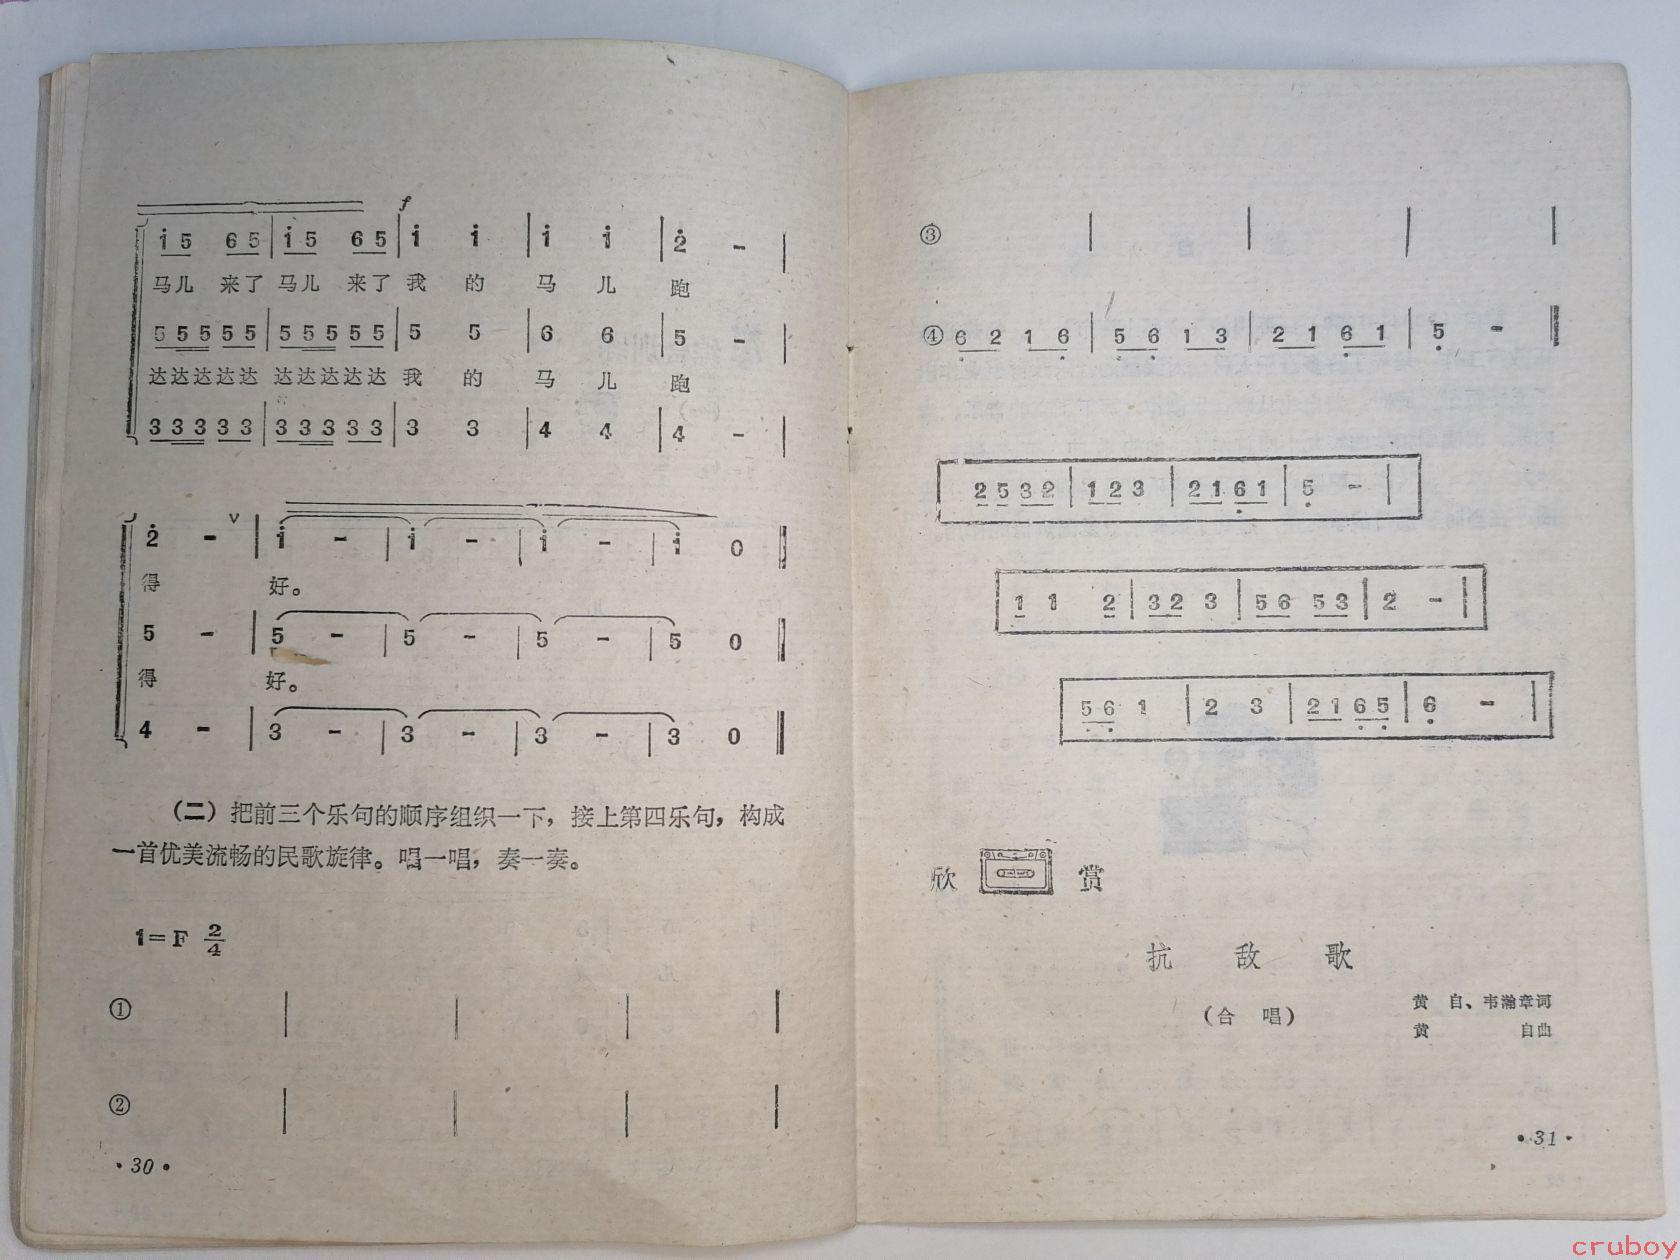 f
i̇ 5 6 5 | i̇ 5 6 5 | i̇ i̇ | i̇ i̇ | 2̇ - |
马儿 来了 马儿 来了 我 的 马 儿 跑
5 5 5 5 5 | 5 5 5 5 5 | 5 5 | 6 6 | 5 - |
达达达达达 达达达达达 我 的 马 儿 跑
3 3 3 3 3 | 3 3 3 3 3 | 3 3 | 4 4 | 4 - |
2̇ - V | i̇ - | i̇ - | i̇ - | i̇ 0 ‖
得 好。
5 - | 5 - | 5 - | 5 - | 5 0 ‖
得 好。
4 - | 3 - | 3 - | 3 - | 3 0 ‖
(二) 把前三个乐句的顺序组织一下，接上第四乐句，构成
一首优美流畅的民歌旋律。唱一唱，奏一奏。
1=F 2/4
① | | | |
② | | | |
·30·
③ | | | |
④ 6̣ 2 1 6̣ | 5̣ 6̣ 1 3 | 2 1 6̣ 1 | 5̣ - ‖
2 5 3 2 | 1 2 3 | 2 1 6̣ 1 | 5 - |
1 1 2 | 3 2 3 | 5 6 5 3 | 2 - |
5̣ 6̣ 1 | 2 3 | 2 1 6̣ 5̣ | 6̣ - |
欣 赏
抗 敌 歌
(合 唱)
黄 自、韦瀚章词
黄 自曲
·31·
cruboy